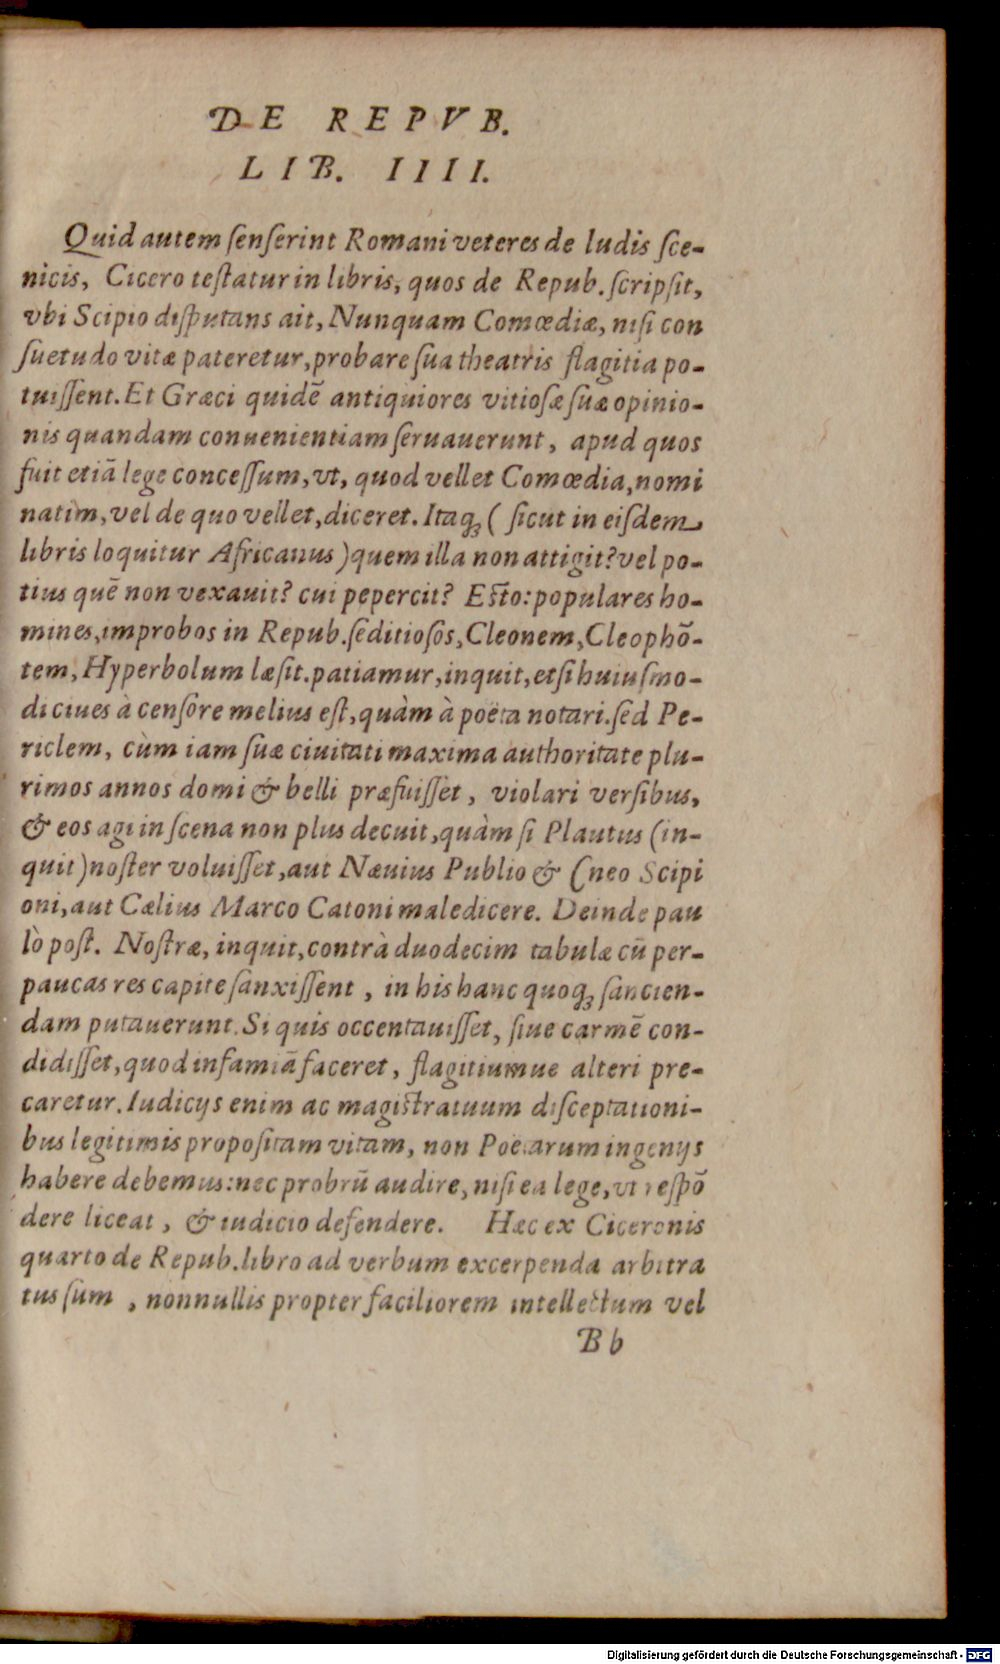 DE REPVB.
LIB. IIII.
Quid autem ſenſerint Romani veteres de ludis ſce-
nicis, Cicero teſtatur in libris, quos de Repub. ſcripſit,
vbi Scipio diſputans ait, Nunquam Comœdiæ, niſi con
ſuetudo vitæ pateretur, probare ſua theatris flagitia po-
tuiſſent. Et Græci quidē antiquiores vitioſæ ſuæ opinio-
nis quandam conuenientiam ſeruauerunt, apud quos
fuit etiā lege conceſſum, vt, quod vellet Comœdia, nomi
natim, vel de quo vellet, diceret. Itaqꝫ ( ſicut in eiſdem
libris loquitur Africanus ) quem illa non attigit? vel po-
tius quē non vexauit? cui pepercit? Eſto: populares ho-
mines, improbos in Repub. ſeditioſos, Cleonem, Cleophō-
tem, Hyperbolum læſit. patiamur, inquit, etſi huiuſmo-
di ciues à cenſore melius eſt, quàm à poëta notari. ſed Pe-
riclem, cùm iam ſuæ ciuitati maxima authoritate plu-
rimos annos domi & belli præfuiſſet, violari verſibus,
& eos agi in ſcena non plus decuit, quàm ſi Plautus (in-
quit) noſter voluiſſet, aut Næuius Publio & Cneo Scipi
oni, aut Cælius Marco Catoni maledicere. Deinde pau
lò poſt. Noſtræ, inquit, contrà duodecim tabulæ cū per-
paucas res capite ſanxiſſent, in his hanc quoqꝫ ſancien-
dam putauerunt. Si quis occentauiſſet, ſiue carmē con-
didiſſet, quod infamiā faceret, flagitiumue alteri pre-
caretur. Iudicijs enim ac magiſtratuum diſceptationi-
bus legitimis propoſitam vitam, non Poëtarum ingenijs
habere debemus: nec probrū audire, niſi ea lege, vt reſpō
dere liceat, & iudicio defendere. Hæc ex Ciceronis
quarto de Repub. libro ad verbum excerpenda arbitra
tus ſum, nonnullis propter faciliorem intellectum vel
Bb
Digitalisierung gefördert durch die Deutsche Forschungsgemeinschaft - DFG